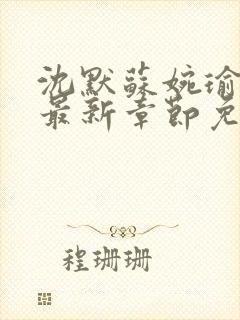 沈默蘇婉瑜
最新章節免
程珊珊